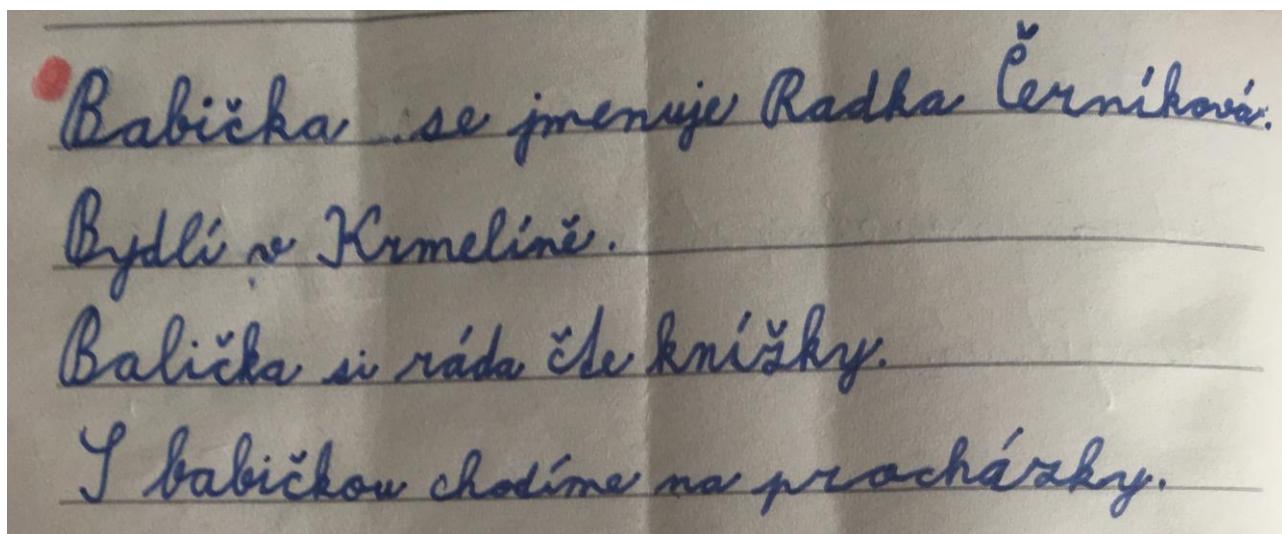 Babička se jmenuje Radka Černíková.
Bydlí v Krmelíně.
Balička si ráda čte knížky.
S babičkou chodíme na procházky.